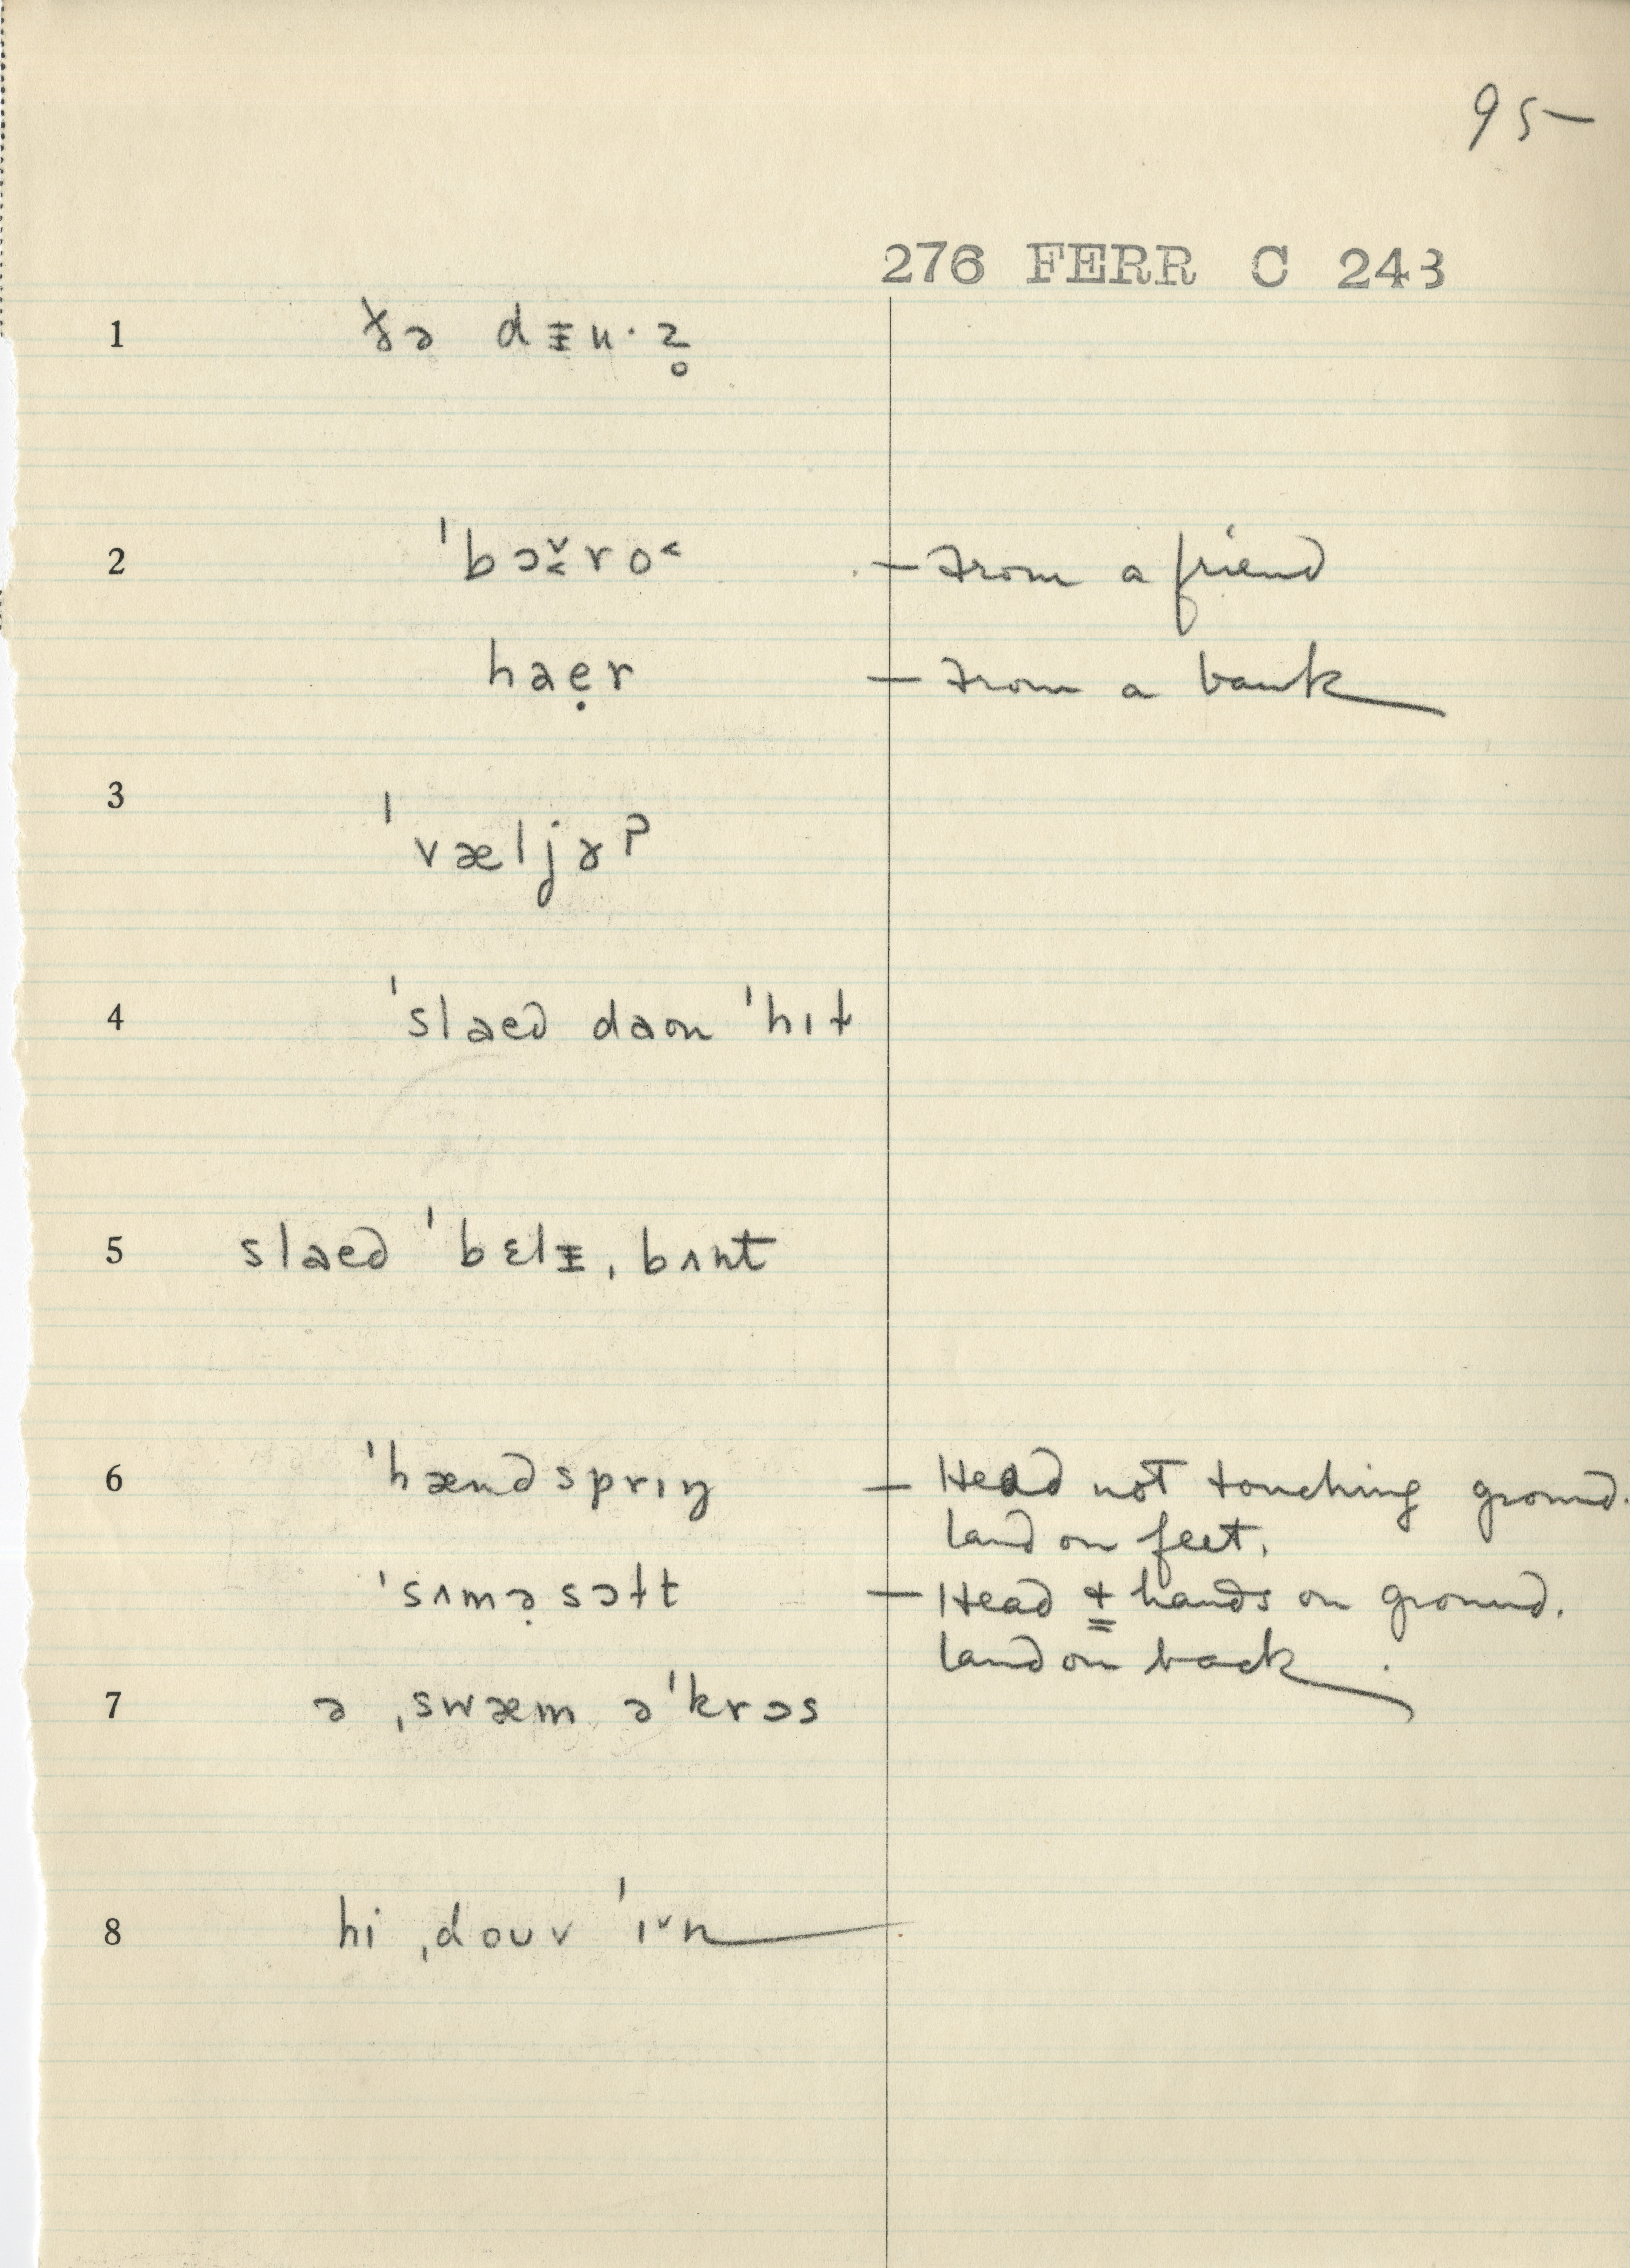 95
276 FERR C 243
1 ɣə dᵻn·z̥
2 ˈbɔ̬ro˂ — From a friend
haẹr — From a bank
3 ˈvæljɚʔ
4 ˈslaed daʊn ˈhɪɫ
5 slaed ˈbɛlᵻˌbʌnt
6 ˈhændsprɪŋ — Head not touching ground.
land on feet.
ˈsʌmə̣sɔɫt — Head & hands on ground.
land on back
7 ə ˌswæm əˈkrɔs
8 hi ˌdouv ˈɪ˅n